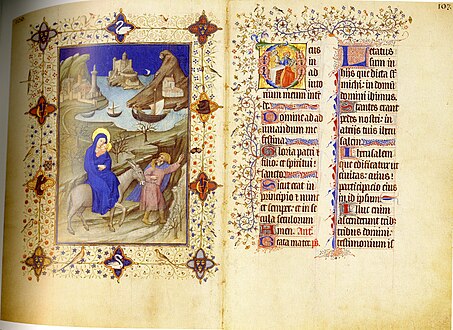 107.
Deus
in
ad
iuto
rium meum inte
de.
Domine ad ad
iuuandum me
festina.
Gloria patri et
filio et spiritui
sancto
Sicut erat in
principio et nunc
et semper et in se
cula seculorum
Amen. Ant.
Beata mater. ps
Letatus
sum in
hijs que dicta st
michi: in domu
domini ibimus.
Stantes erant
pedes nostri: in
atrijs tuis iheru
salem.
Iherusalem
que edificatur ut
ciuitas: cuius
participacio eius
in id ipsum.
Illuc enim
ascenderunt trib
tribus domini:
testimonium is